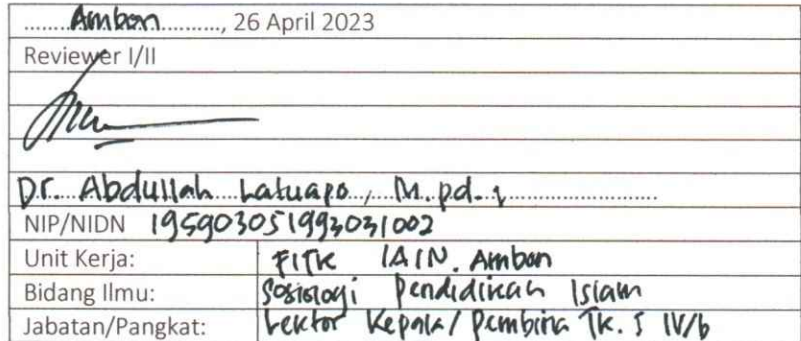 Ambon, 26 April 2023
Reviewer I/II
Dr. Abdullah Latuapo, M.pd.I
NIP/NIDN 195903051993031002
Unit Kerja: FITK IAIN. Ambon
Bidang Ilmu: Sosiologi Pendidikan Islam
Jabatan/Pangkat: Lektor Kepala / Pembina Tk. I IV/b